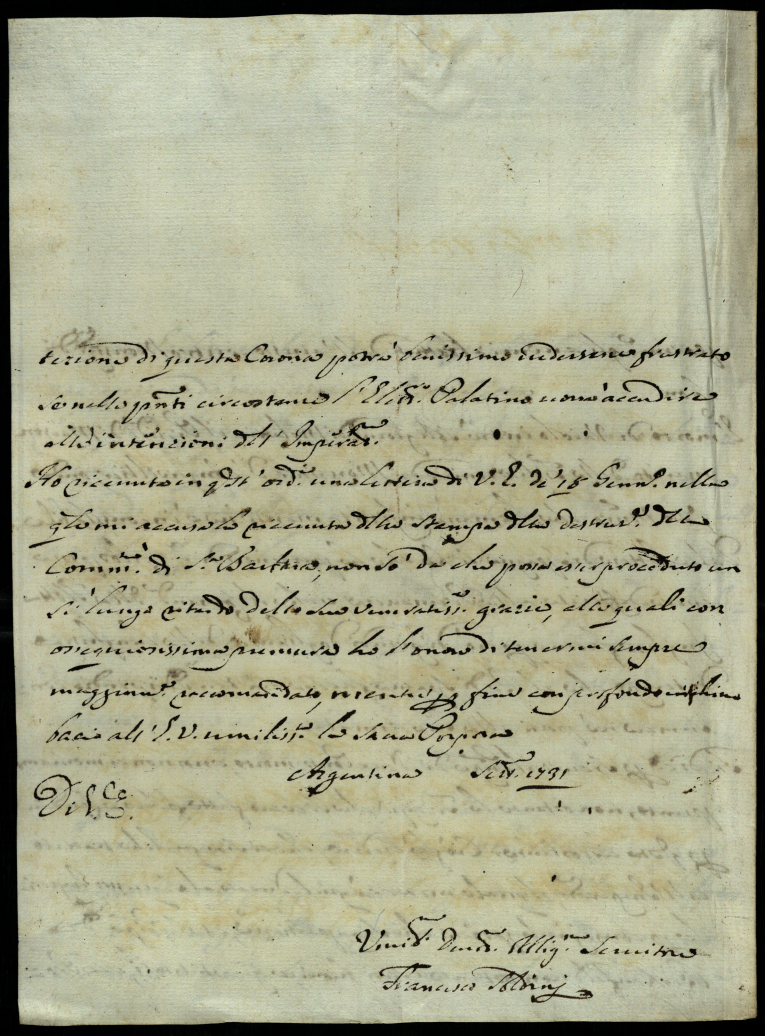 tezione di questa Corona potrà benissimo rendersene frastrato
se nelle pñti circostanze l'Elett.e Palatino non accudirà
alle intenzioni dell' Imperat.e
Ho ricevuto in qst' ord.o una lettera di V. E. de' 18 Genn.o nella
qle mi accusa la ricevuta della stampa della
Comm.e di S.ta Barbara, non sò da che possa esser proceduto un
sì lungo ritardo delle sue veneratiss.e grazie, alle quali con
ossequiosissima premura ho l'onore di tenermi sempre
maggiorm.e raccomandato, mentre p fine con profondo inchino
bacio all' E. V. umiliss.e la Sacra Porpora
Argentina 1731
Di V. E.
Umil.o Devot. Obblig.o Servitore
Francesco